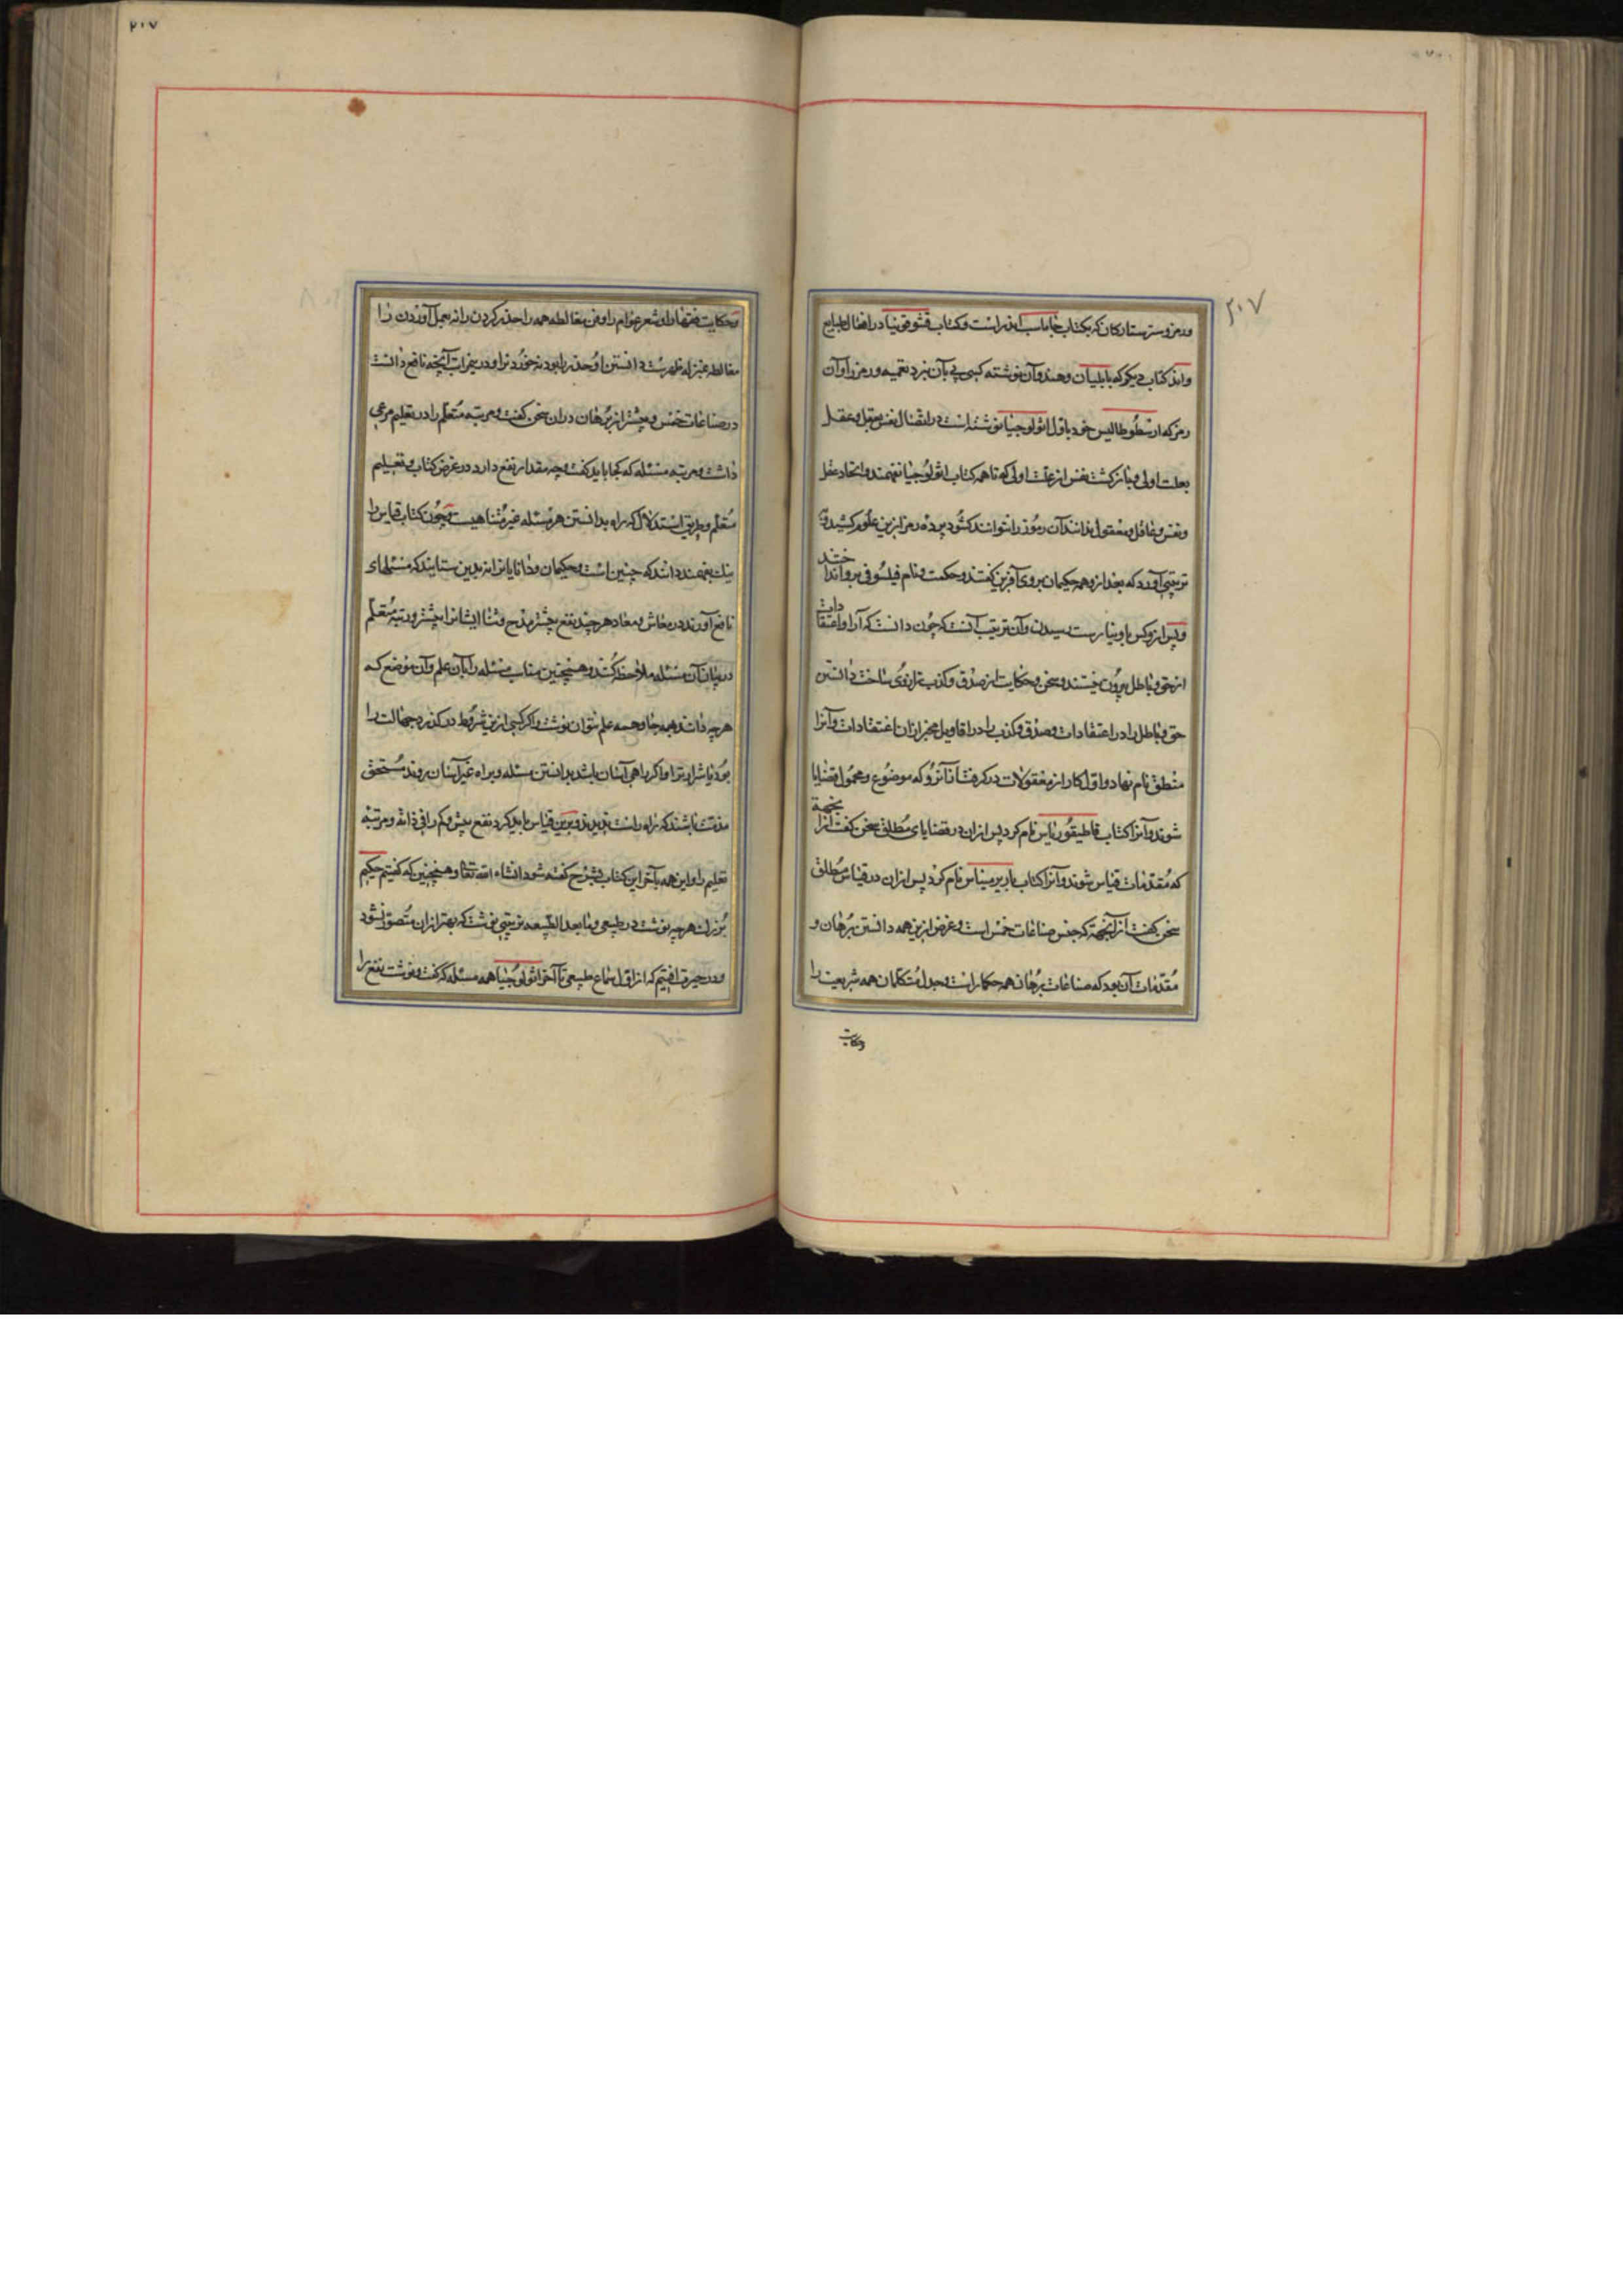 ۲۰۷
۲۰۷
و رمز و سر ستارکان که بکتاب جاماسب اندر است و کتاب در افعال طبایع
و اند کتاب دیکر که بابلیان و هند و آن نوشته کسی پی بآن نبرد تعمیه و رمز را و آن
رمز که ارسطوطالیس خود باول اثولوجیا نوشته است در اتصال نفس بعقل و عقل
بعلت اولی و باز کشت نفس از علت اولی که تا همه کتاب اثولوجیا نفهمند و اتحاد عقل
و نفس و عاقل و معقول ندانند آن رموز را نتوانند کشود پرده رمز ازین علوم کشید و
ترتیبی آورد که بعد ازو همه حکیمان بروی آفرین کفتند و حکمت و نام فیلسوفی برو انداختند
و پس ازو کس باو نیارست رسیدن و آن ترتیب آنست که چون دانست که آرا و اعتقادات
از حق و باطل بیرون نیستند و سخن و حکایت از صدق و کذب ترازوی ساخت دانستن
حق و باطل را در اعتقادات و صدق و کذب را در اقاویل مخبر ازان اعتقادات و آنرا
منطق نام نهاد و اول کار از معقولات در کرفت از آنرو که موضوع و محمول قضایا
شوند و آنرا کتاب قاطیقوریاس نام کرد پس ازان در قضایای مطلق سخن کفت از آنجهة
که مقدمات قیاس شوند و آنرا کتاب باریرمیناس نام کرد پس ازان در قیاس مطلق
سخن کفت از آنجهة که جنس صناعات خمس است و غرض ازین همه دانستن برهان و
مقدمات آن بود که صناعات برهان همه حکما راست و جدل متکلمان همه شریعت را
وحکایت
وحکایت فقها را و شعر عوام را و فن مغالطه همه را حذر کردن را نه بعمل آوردن را
مغالطه بمنزله زهرست دانستن او حذر را بود نه خوردن را و در خطابت آنچه نافع دانست
در صناعات خمس و بیشتر از برهان دران سخن کفت و مرتبه متعلم را در تعلیم مرعی
داشت و مرتبه مسئله که کجا باید کفت و چه مقدار نفع دارد در غرض کتاب و تعلیم
متعلم و طریق استدلال که راه بدانستن هر مسئله غیر متناهیست و چون کتاب قیاس را
نیک بفهمند دانند که چنین است و حکیمان و دانایان را نه بدین ستایند که مسئلهای
نافع آورند در معاش و معاد هر چند نفع بیشتر مدح و ثنا ایشانرا بیشتر و رتبه متعلم
در بیان آن مسئله ملاحظه کنند و همچنین مناسب مسئله را بآن علم و آن موضع که
هرچه دانند بهمه جا و همه علم نتوان نوشت و اکر کسی ازین شروط در کذرد جهالت را
بود یا شرارت را و اکر راهی آسان باشد بدانستن مسئله و براه غیر آسان روند مستحق
مذمت باشند که راه راست ندیدند و برین قیاس باید کرد نفع بیش و کم را فی ذاته و مرتبه
تعلیم را و این همه بآخر این کتاب بشرح کفته شود انشاء الله تعالی و همچنین که کفتیم حکیم
بزرک هرچه نوشت در طبیعی و مابعد الطبیعه ترتیبی نوشت که بهتر ازان متصور نشود
و در حیرت افتیم که از اول سماع طبیعی تا آخر اثولوجیا همه مسئله که کفت و نوشت نفع را